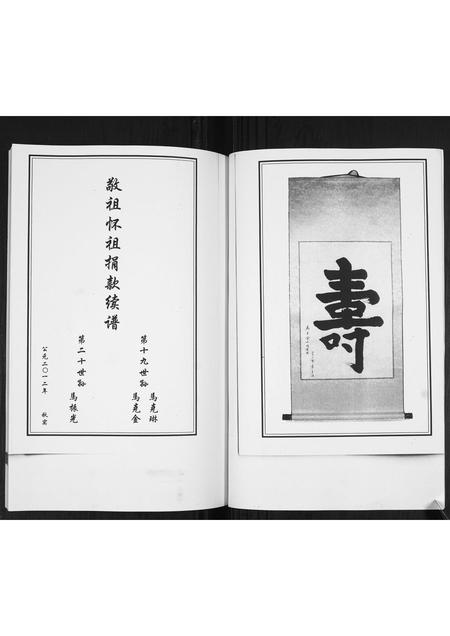 敬祖怀祖捐款续谱
第十九世孙 馬克琳
馬克金
第二十世孙 馬振光
公元二〇一二年 秋
壽